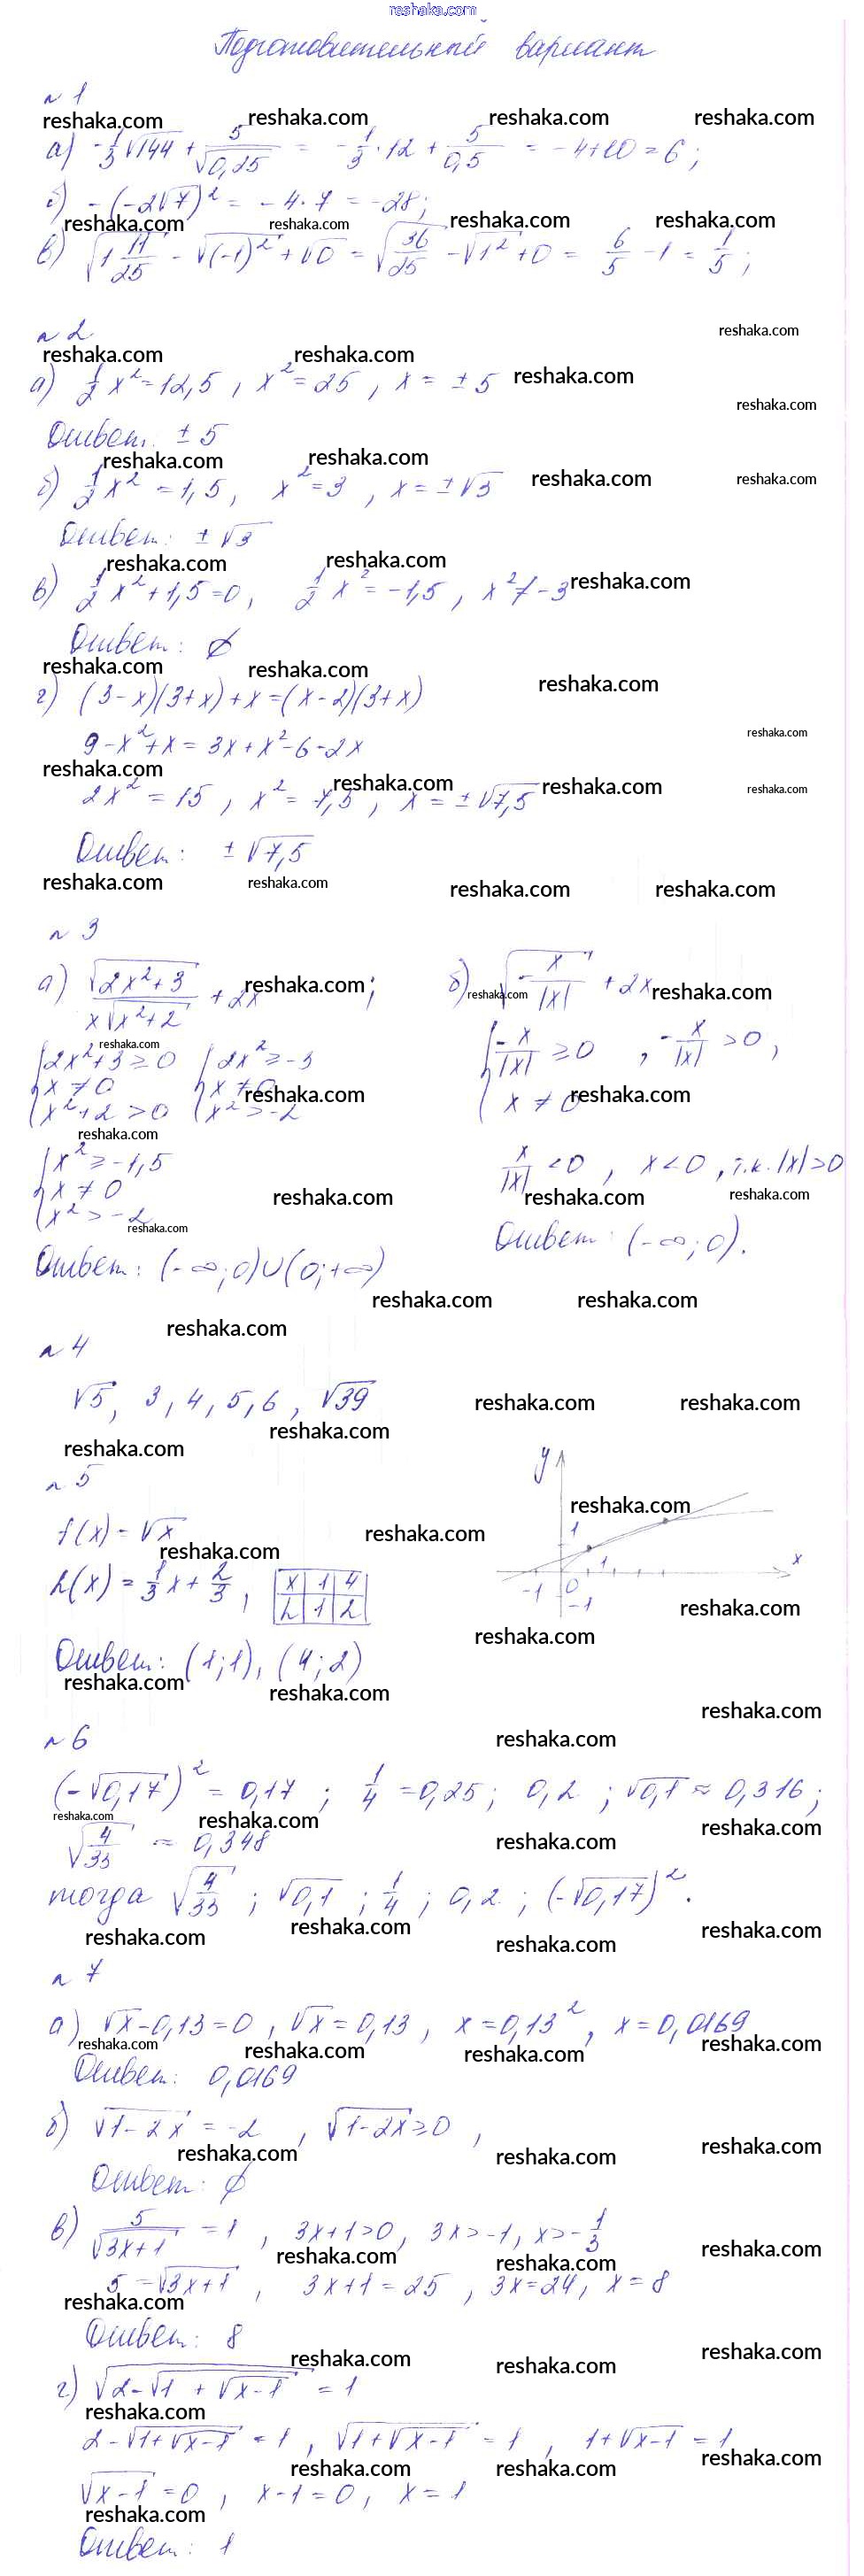 reshaka.com
Подготовительный вариант
№ 1
а) -1/3 √144 + 5/√0,25 = -1/3 · 12 + 5/0,5 = -4+10 = 6;
б) -(-2√7)² = -4·7 = -28;
в) √(1 11/25) - √(-1)² + √0 = √(36/25) - √1² + 0 = 6/5 - 1 = 1/5;
№ 2
а) 1/2 x² = 12,5, x² = 25, x = ±5
Ответ: ±5
б) 1/2 x² = 1,5, x² = 3, x = ±√3
Ответ: ±√3
в) 1/2 x² + 1,5 = 0, 1/2 x² = -1,5, x² ≠ -3
Ответ: ∅
г) (3-x)(3+x)+x=(x-2)(3+x)
9-x²+x = 3x+x²-6-2x
2x² = 15, x² = 7,5, x = ±√7,5
Ответ: ±√7,5
№ 3
а) √(2x²+3) / (x√(x²+2)) + 2x;
{2x²+3 ≥ 0 {2x² ≥ -3
{x ≠ 0 {x ≠ 0
{x²+2 > 0 {x² > -2
{x² ≥ -1,5
{x ≠ 0
{x² > -2
Ответ: (-∞;0)∪(0;+∞)
б) √(-x/|x|) + 2x
{-x/|x| ≥ 0, -x/|x| > 0,
{x ≠ 0
x/|x| < 0, x < 0, т.к. |x| > 0
Ответ: (-∞;0).
№ 4
√5, 3, 4, 5, 6, √39
№ 5
f(x) = √x
h(x) = 1/3 x + 2/3,
x 1 4
h 1 2
y
1
-1 0 1 x
-1
Ответ: (1;1), (4;2)
№ 6
(-√0,17)² = 0,17; 1/4 = 0,25; 0,2; √0,1 ≈ 0,316;
√(4/33) ≈ 0,348
тогда √(4/33); √0,1; 1/4; 0,2; (-√0,17)².
№ 7
а) √x - 0,13 = 0, √x = 0,13, x = 0,13², x = 0,0169
Ответ: 0,0169
б) √(1-2x) = -2, √(1-2x) ≥ 0,
Ответ: ∅
в) 5/√(3x+1) = 1, 3x+1>0, 3x>-1, x>-1/3
5 = √(3x+1), 3x+1 = 25, 3x = 24, x = 8
Ответ: 8
г) √(2-√(1+√(x-1))) = 1
2-√(1+√(x-1)) = 1, √(1+√(x-1)) = 1, 1+√(x-1) = 1
√(x-1) = 0, x-1 = 0, x = 1
Ответ: 1